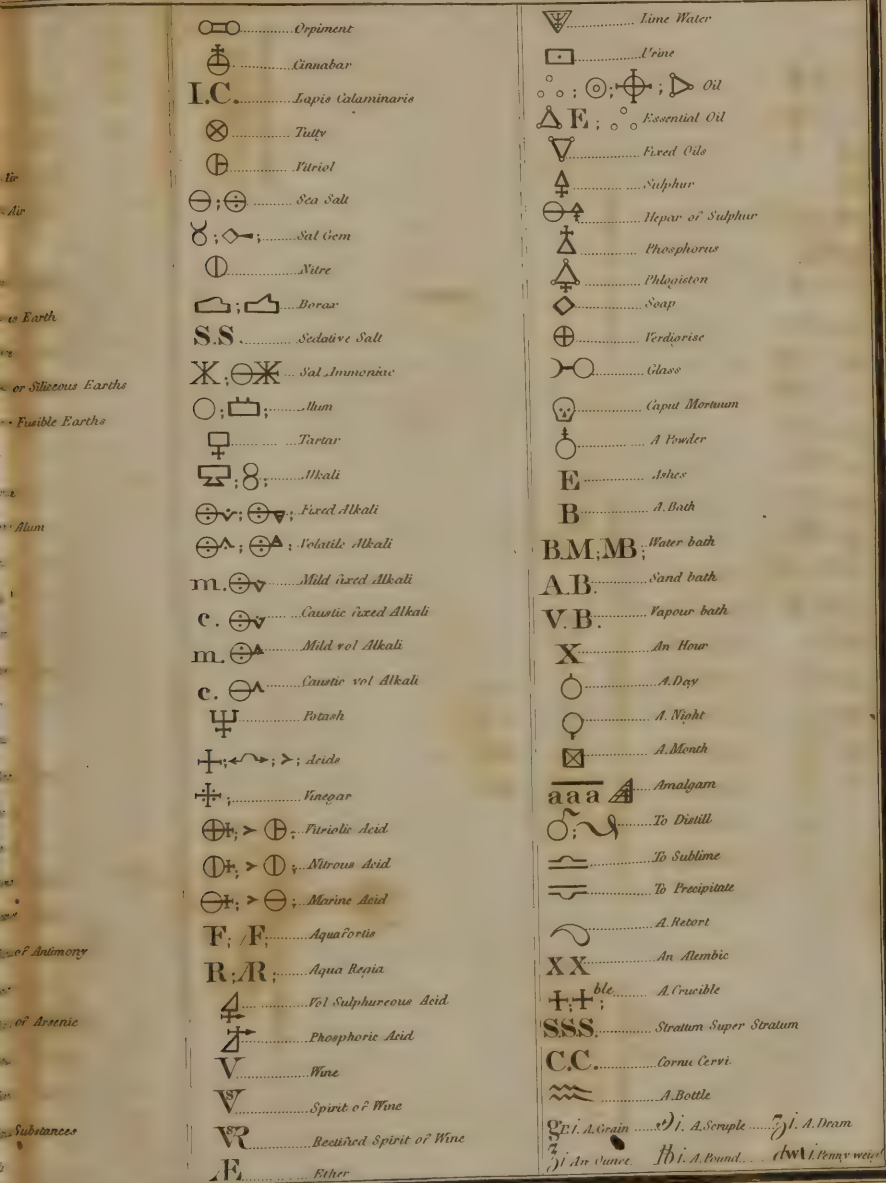 Air
Air
Earth
or Siliceous Earths
Fusible Earths
Alum
of Antimony
of Arsenic
Substances
Orpiment
Cinnabar
I.C. Lapis Calaminaris
Tutty
Vitriol
; Sea Salt
; ; Sal Gem
Nitre
; Borax
S.S. Sedative Salt
; Sal Ammoniac
; ; Alum
Tartar
; ; Alkali
; ; Fixed Alkali
; ; Volatile Alkali
m. Mild fixed Alkali
c. Caustic fixed Alkali
m. Mild vol Alkali
c. Caustic vol Alkali
Potash
; ; ; Acids
; Vinegar
; ; Vitriolic Acid
; ; Nitrous Acid
; ; Marine Acid
F; Æ; Aquafortis
R; Æ; Aqua Regia
Vol Sulphureous Acid
Phosphoric Acid
V Wine
V S Spirit of Wine
V S R Rectified Spirit of Wine
Æ Ether
Lime Water
Urine
; ; ; Oil
E ; Essential Oil
Fixed Oils
Sulphur
Hepar of Sulphur
Phosphorus
Phlogiston
Soap
Verdigrise
Glass
Caput Mortuum
A Powder
E Ashes
B A. Bath
B.M; MB; Water bath
A.B. Sand bath
V.B. Vapour bath
X An Hour
A. Day
A. Night
A. Month
aaa Amalgam
; To Distill
To Sublime
To Precipitate
A. Retort
XX An Alembic
; ble; A. Crucible
S.S.S. Stratum Super Stratum
C.C. Cornu Cervi
A. Bottle
gr. i. A. Grain ℈i. A. Scruple ʒi. A. Dram
℥i An Ounce ℔i. A. Pound dwt i. Penny weight